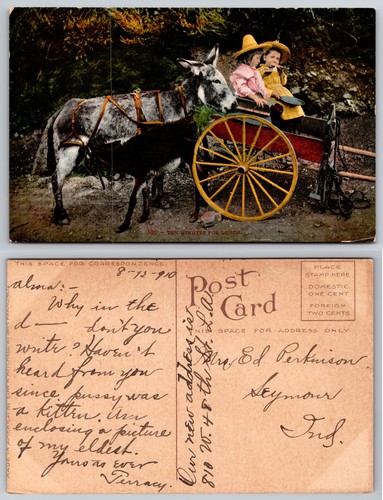 TEN MINUTES FOR LUNCH.
THIS SPACE FOR CORRESPONDENCE.
8-13-910
Alma:-
Why in the
d— don't you
write? Haven't
heard from you
since pussy was
a kitten. Am
enclosing a picture
of my eldest.
Yours as ever
Our new address is
810 W. 48th St. L.A.
Post
Card
THIS SPACE FOR ADDRESS ONLY
PLACE
STAMP HERE
DOMESTIC
ONE CENT
FOREIGN
TWO CENTS
Mrs. Ed Perkinson
Seymour
Ind.